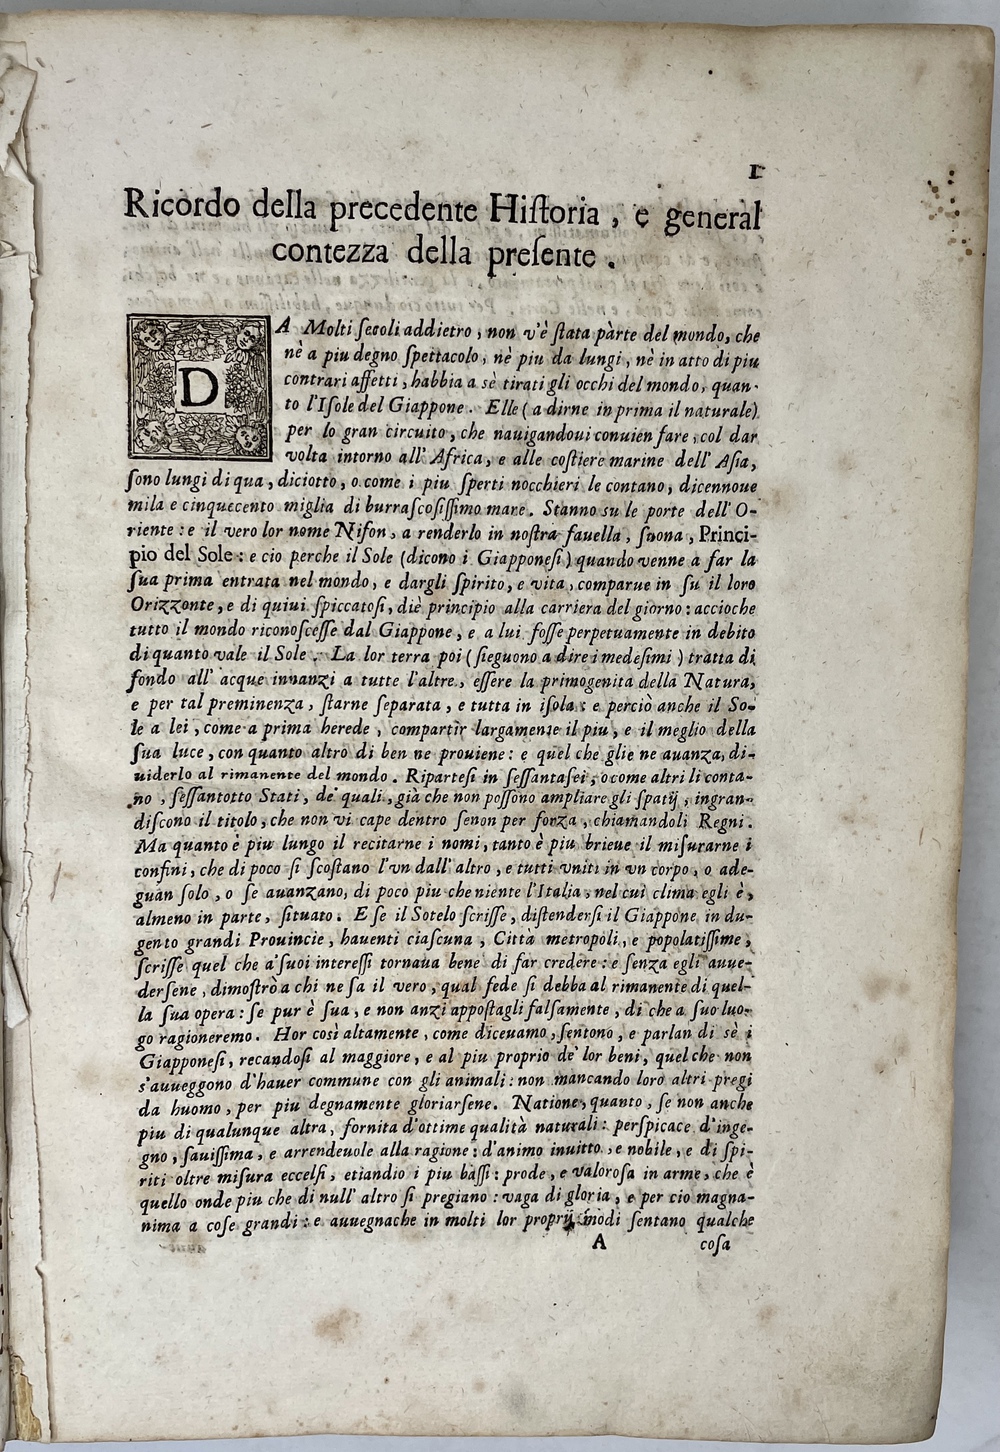 1
Ricordo della precedente Hiſtoria, e general
contezza della preſente.
DA Molti ſecoli addietro, non v'è ſtata parte del mondo, che
nè a piu degno ſpettacolo, nè piu da lungi, nè in atto di piu
contrari affetti, habbia a sè tirati gli occhi del mondo, quan-
to l'Iſole del Giappone. Elle (a dirne in prima il naturale)
per lo gran circuito, che nauigandoui conuien fare, col dar
volta intorno all'Africa, e alle coſtiere marine dell'Aſia,
ſono lungi di qua, diciotto, o come i piu ſperti nocchieri le contano, dicennoue
mila e cinquecento miglia di burraſcoſiſſimo mare. Stanno su le porte dell'O-
riente: e il vero lor nome Nifon, a renderlo in noſtra fauella, ſuona, Princi-
pio del Sole: e cio perche il Sole (dicono i Giapponeſi) quando venne a far la
ſua prima entrata nel mondo, e dargli ſpirito, e vita, comparue in ſu il loro
Orizzonte, e di quiui ſpiccatoſi, diè principio alla carriera del giorno: accioche
tutto il mondo riconoſceſſe dal Giappone, e a lui foſſe perpetuamente in debito
di quanto vale il Sole. La lor terra poi (ſieguono a dire i medeſimi) tratta di
fondo all'acque innanzi a tutte l'altre, eſſere la primogenita della Natura,
e per tal preminenza, ſtarne ſeparata, e tutta in iſola: e perciò anche il So-
le a lei, come a prima herede, compartir largamente il piu, e il meglio della
ſua luce, con quanto altro di ben ne prouiene: e quel che glie ne auanza, di-
uiderlo al rimanente del mondo. Ripartеſi in ſeſſantaſei, o come altri li conta-
no, ſeſſantotto Stati, de' quali, già che non poſſono ampliare gli ſpatij, ingran-
diſcono il titolo, che non vi cape dentro ſenon per forza, chiamandoli Regni.
Ma quanto è piu lungo il recitarne i nomi, tanto è piu brieue il miſurarne i
confini, che di poco ſi ſcoſtano l'vn dall'altro, e tutti vniti in vn corpo, o ade-
guan ſolo, o ſe auanzano, di poco piu che niente l'Italia, nel cui clima egli è,
almeno in parte, ſituato. E ſe il Sotelo ſcriſſe, diſtenderſi il Giappone in du-
gento grandi Prouincie, hauenti ciaſcuna, Città metropoli, e popolatiſſime,
ſcriſſe quel che a' ſuoi intereſſi tornaua bene di far credere: e ſenza egli auue-
derſene, dimoſtrò a chi ne ſa il vero, qual fede ſi debba al rimanente di quel-
la ſua opera: ſe pur è ſua, e non anzi appoſtagli falſamente, di che a ſuo luo-
go ragioneremo. Hor così altamente, come diceuamo, ſentono, e parlan di sè i
Giapponeſi, recandoſi al maggiore, e al piu proprio de' lor beni, quel che non
s'auueggono d'hauer commune con gli animali: non mancando loro altri pregi
da huomo, per piu degnamente gloriarſene. Natione, quanto, ſe non anche
piu di qualunque altra, fornita d'ottime qualità naturali: perſpicace d'inge-
gno, ſauiſſima, e arrendeuole alla ragione: d'animo inuitto, e nobile, e di ſpi-
riti oltre miſura eccelſi, etiandio i piu baſſi: prode, e valoroſa in arme, che è
quello onde piu che di null'altro ſi pregiano: vaga di gloria, e per cio magna-
nima a coſe grandi: e auuegnache in molti lor proprij modi ſentano qualche
A coſa